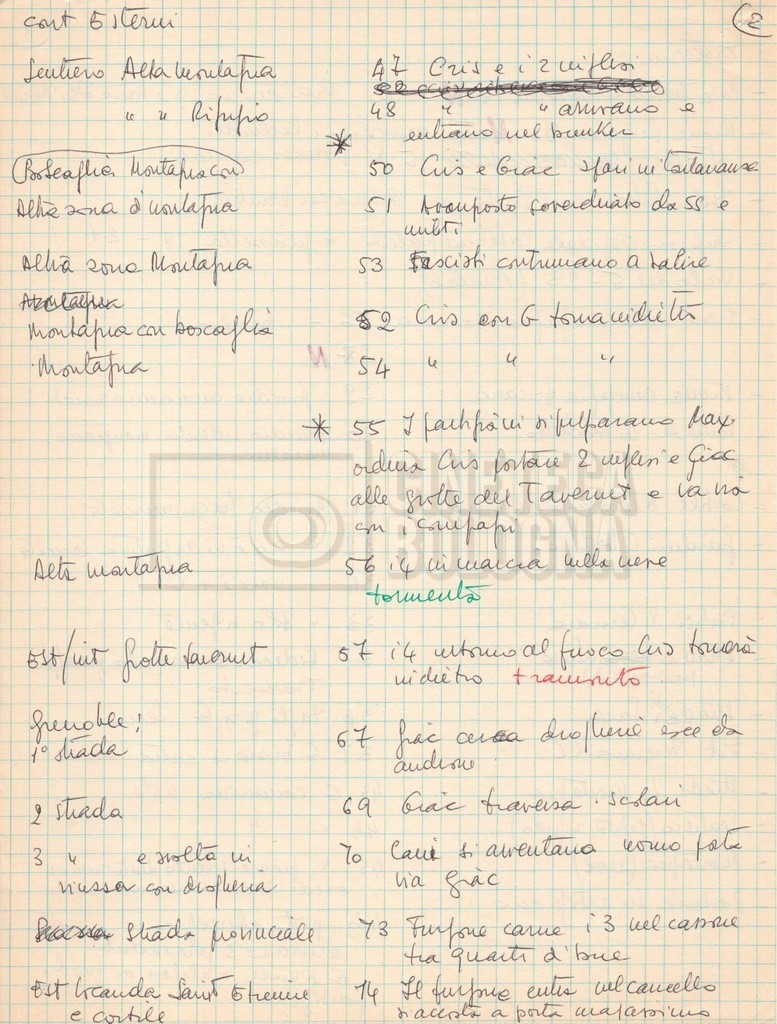 cont Esterni
2
Sentiero Alta montagna 47 Cris e i 2 inglesi
" " Rifugio 48 " " arrivano e
entrano nel bunker
*
Boscaglia Montagna con 50 Cris e Giac spari in lontananza
Altra zona d'montagna 51 Avamposto da SS e
Altra zona Montagna 53 Fascisti continuano a salire
Montagna con boscaglia 52 Cris con G torna indietro
Montagna 54 " " "
* 55 I partigiani si Max
ordina Cris portare 2 inglesi e Giac
alle grotte del Tavernet e va via
con i compagni
Alta montagna 56 i 4 in marcia nella neve
tormenta
CINETECA
BOLOGNA
Est/int grotte Tavernet 57 i 4 intorno al fuoco Cris tornerà
indietro tramonto
Grenoble!
1° strada 67 Giac cerca drogheria esce da
androne
2 strada 69 Giac traversa. scolari
3 " e svolta in 70 Cani si avventano uomo porta
con drogheria via Giac
strada provinciale 73 Furgone carne i 3 nel cassone
tra quarti d'bue
Est locanda Saint Etienne 74 Il furgone entra nel cancello
e cortile si accosta a porta